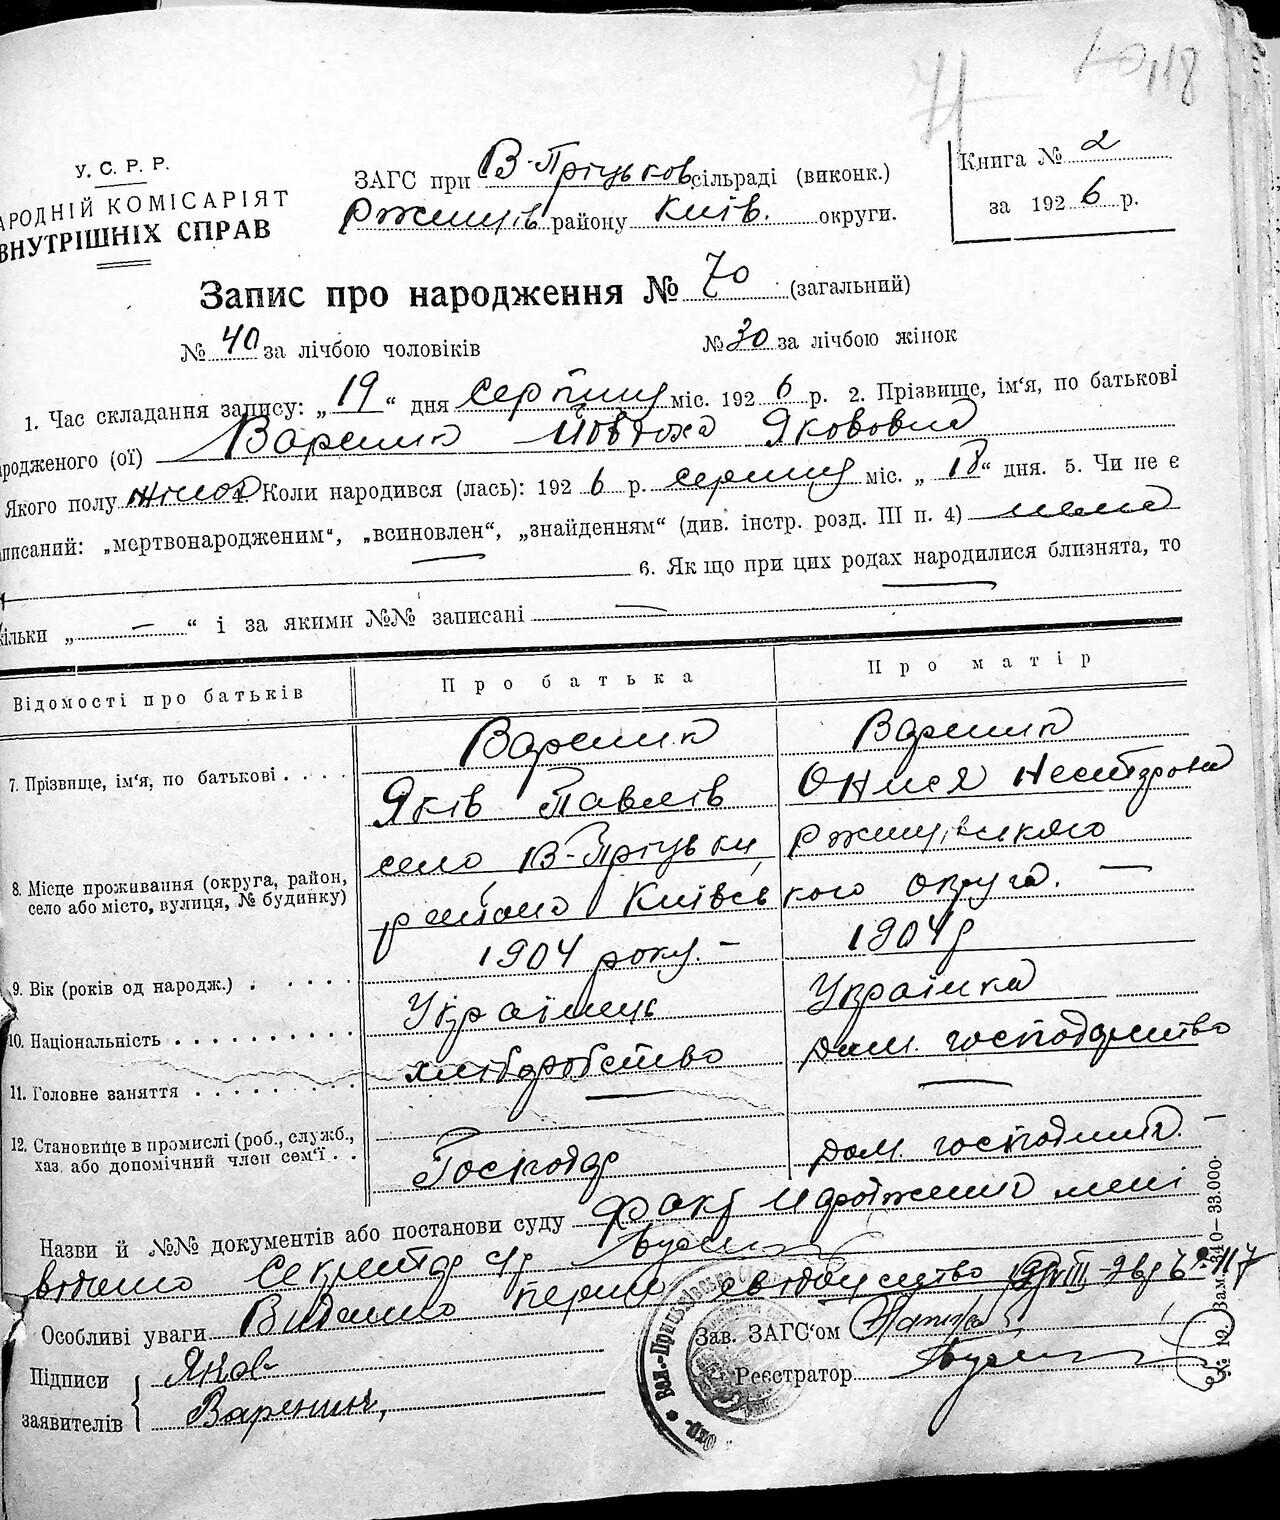 71
70,118
У. С. Р. Р.
АРОДНІЙ КОМІСАРІЯТ
ВНУТРІШНІХ СПРАВ
ЗАГС при В-Пріцьков сільраді (виконк.)
Ржищів району Київ. округи.
Книга № 2
за 1926 р.
Запис про народження № 70 (загальний)
№ 40 за лічбою чоловіків № 30 за лічбою жінок
1. Час складання запису: „19“ дня серпня міс. 1926 р. 2. Прізвище, ім‘я, по батькові
ародженого (ої) Вареник Йовдоха Якововна
Якого полу жіноч. Коли народився (лась): 1926 р. серпня міс. „18“ дня. 5. Чи не є
писаний: „мертвонародженим“, „всиновлен“, „знайденням“ (див. інстр. розд. III п. 4) нема
6. Як що при цих родах народилися близнята, то
ільки „ — “ і за якими №№ записані —
Відомості про батьків Про батька Про матір
Вареник Вареник
7. Прізвище, ім‘я, по батькові . . . . Яків Павлів Онися Несторовна
8. Місце проживання (округа, район, село або місто, вулиця, № будинку)
село В-Пріцьки, Ржищівського
району Київсь кого округа. —
9. Вік (років од народж.) . . . . . 1904 року. — 1904 р
10. Національність . . . . . . . . . Українець Українка
11. Головне заняття . . . . . . . . хліборобство дом. господарство
12. Становище в промислі (роб., служб., хаз. або допомічний член сем‘ї . .
Господар дом. господиня. —
Назви й №№ документів або постанови суду Факт народження мені
відомо Секретар с/р
Особливі уваги Видано перше свідоцтво 19/VIII-26р № 117
Підписи Яков
заявителів Вареник,
Зав. ЗАГС‘ом
Реєстратор
Вел.-Приць